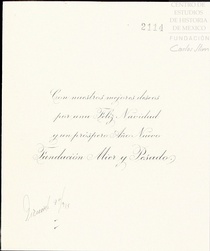 2114
CENTRO DE
ESTUDIOS
DE HISTORIA
DE MEXICO
FUNDACIÓN
Carlos Slim
Con nuestros mejores deseos
por una Feliz Navidad
y un próspero Año Nuevo
Fundación Mier y Pesado